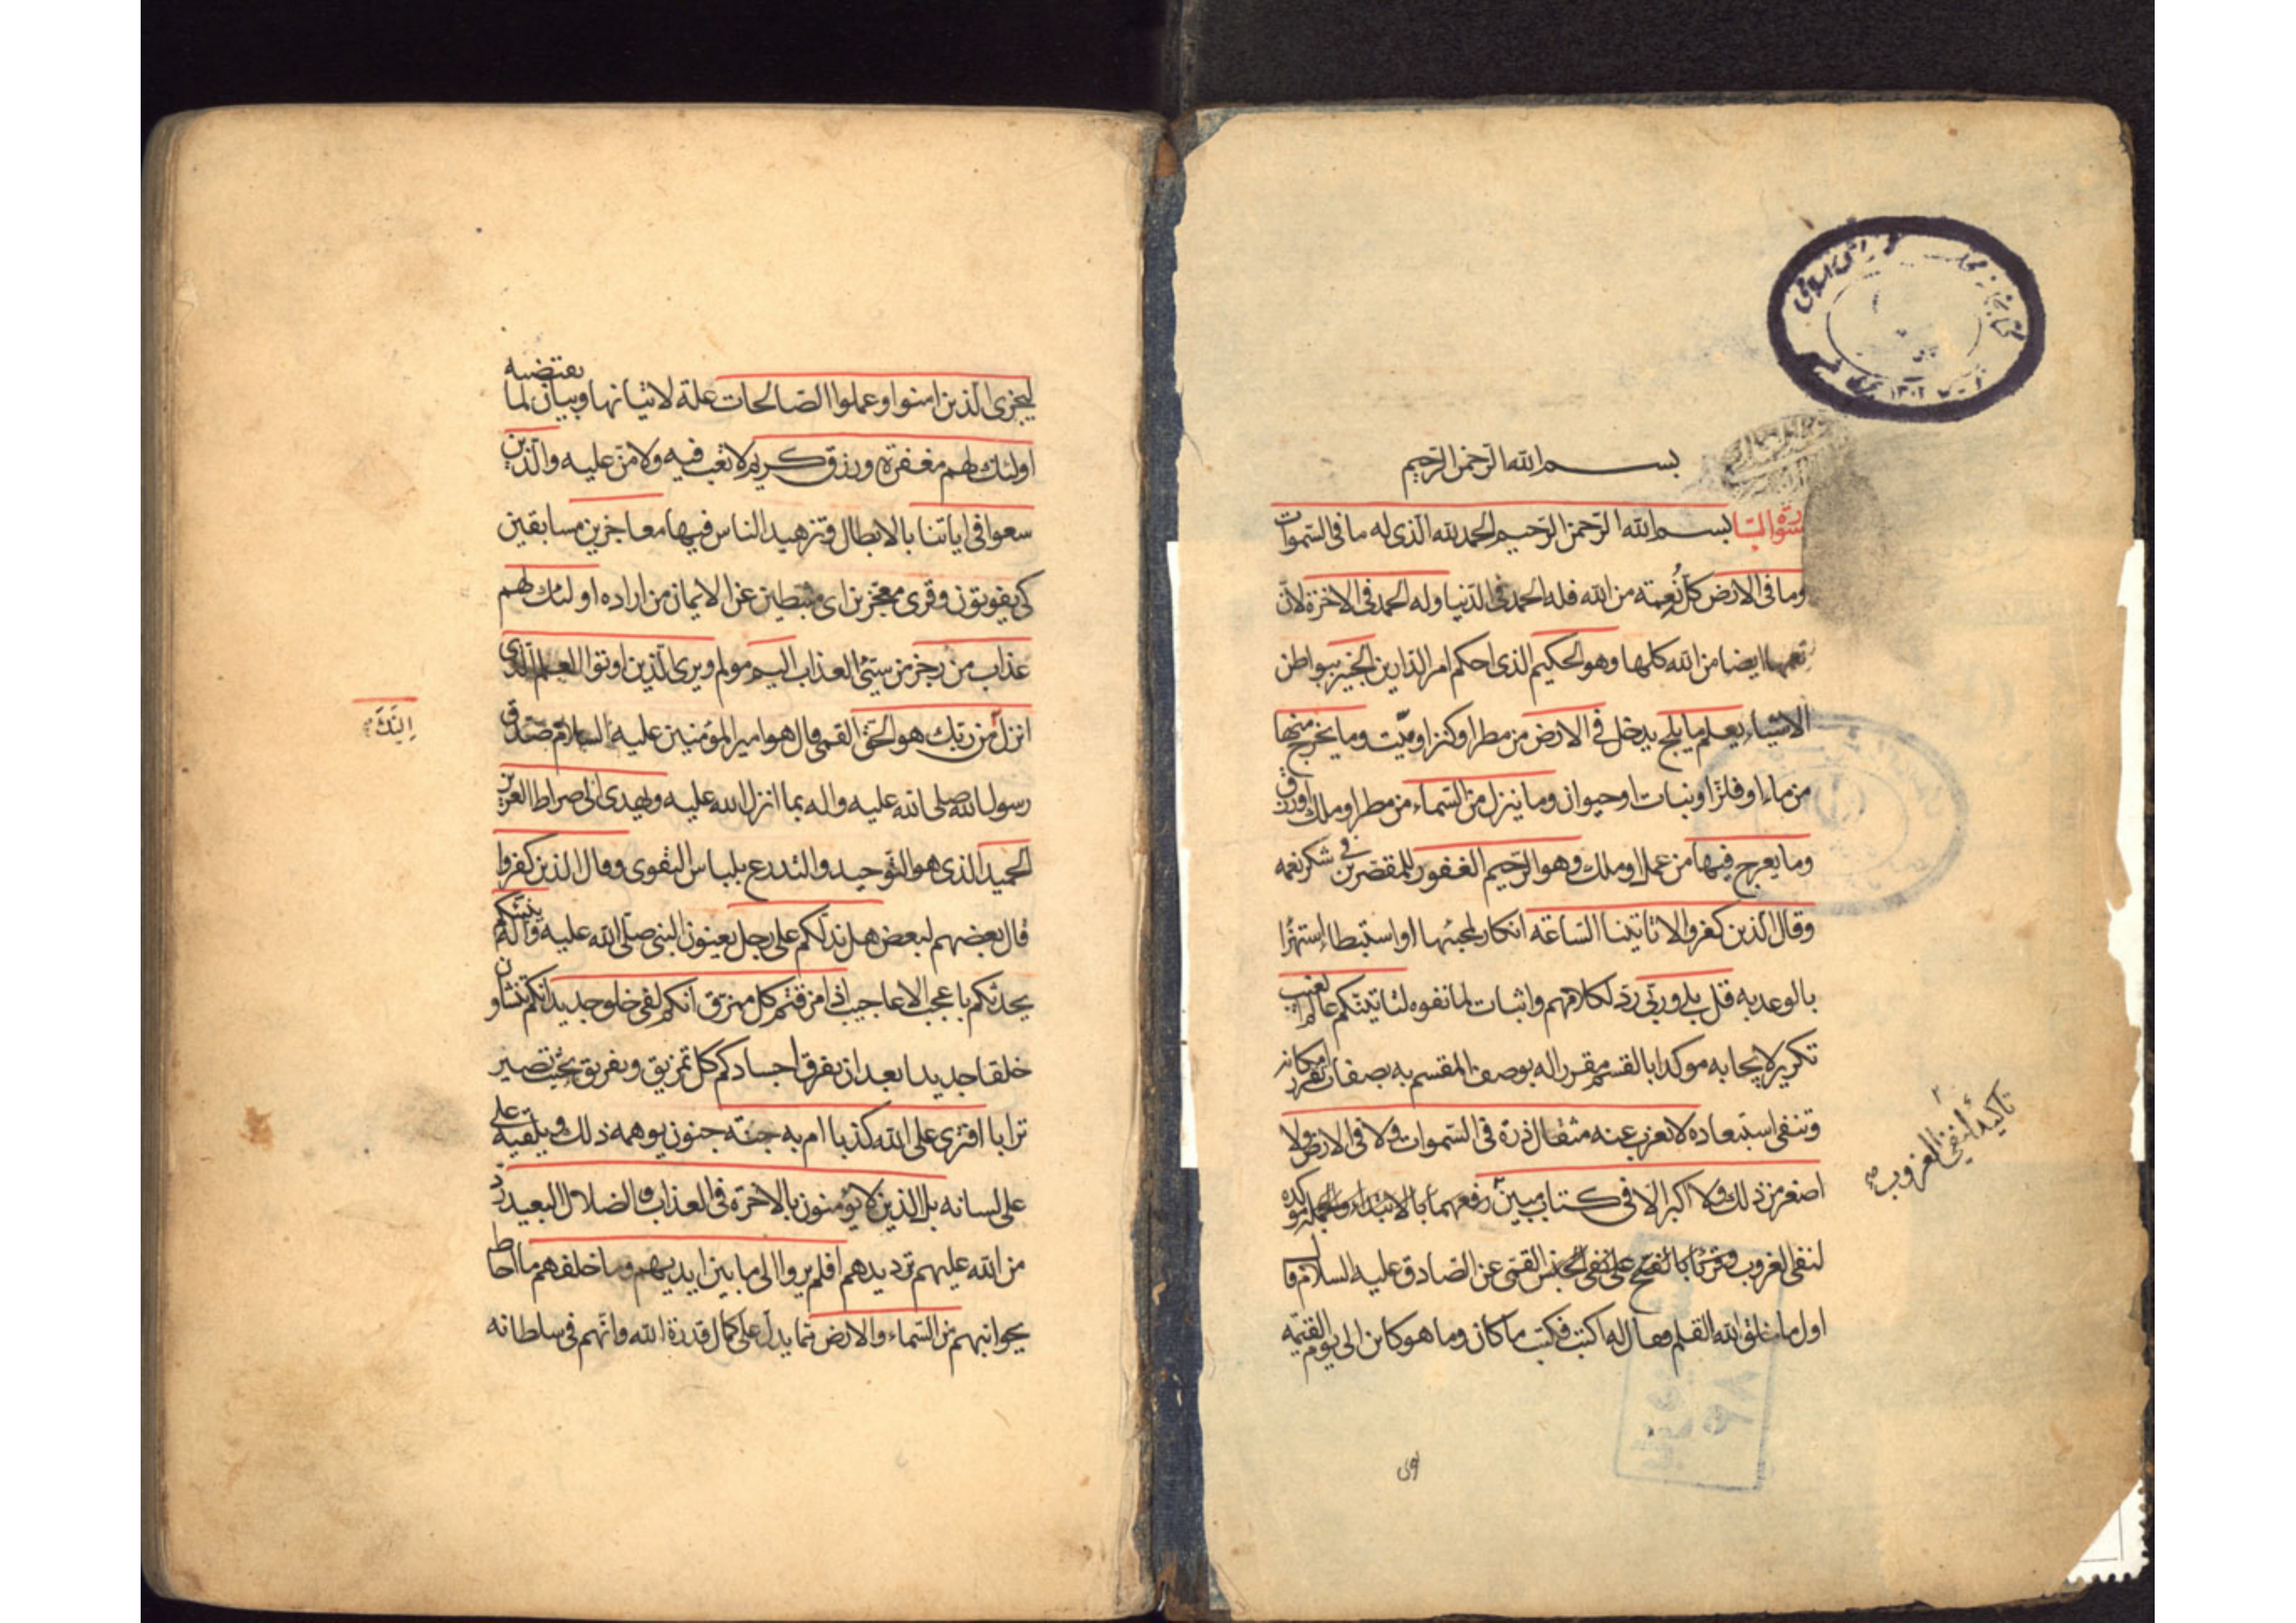 بسم الله الرحمن الرحيم
سورة السبا بسم الله الرحمن الرحيم الحمد لله الذى له ما فى السموات
وما فى الارض كل نعمة من الله فله الحمد فى الدنيا وله الحمد فى الاخرة لان
نعمها ايضا من الله كلها وهو الحكيم الذى احكم امر الدارين الخبير ببواطن
الاشياء يعلم ما يلج يدخل فى الارض من مطر او كنز او ميّت وما يخرج منها
من ماء او فلز او نبات او حيوان وما ينزل من السماء من مطر او ملك او رزق
وما يعرج فيها من عمل او ملك وهو الرحيم الغفور للمقصرين فى شكر نعمه
وقال الذين كفروا لا تاتينا الساعة انكار لمجيئها او استبطاء استهزاء
بالوعد به قل بلى وربّى ردّ لكلامهم واثبات لما نفوه لتاتينكم عالم الغيب
تكرير لايجابه موكدا بالقسم مقررا له بوصف المقسم به بصفات تقرر امكانه
وتنفى استبعاده لا يعزب عنه مثقال ذرة فى السموات ولا فى الارض ولا
اصغر من ذلك ولا اكبر الا فى كتاب مبين رفعهما بالابتداء والجملة موكدة
لنفى العزوب وقرئا بالفتح على نفى الجنس القمى عن الصادق عليه السلام قال
اول ما خلق الله القلم فقال له اكتب فكتب ما كان وما هو كائن الى يوم القيمة
تاكيد النفى العزوب
ليجزى الذين امنوا وعملوا الصالحات علة لاتيانها وبيان لما يقتضيه
اولئك لهم مغفرة ورزق كريم لا تعب فيه ولا منّ عليه والذين
سعوا فى اياتنا بالابطال وتزهيد الناس فيها معاجزين مسابقين
كى يفوتون وقرى معجزين اى مثبطين عن الايمان من اراده اولئك لهم
عذاب من رجز من سيّئ العذاب اليم مولم ويرى الذين اوتوا العلم الذى
انزل من ربك هو الحق القمى قال هو امير المؤمنين عليه السلام صدّق
اليك
رسول الله صلى الله عليه واله بما انزل الله عليه ويهدى الى صراط العزيز
الحميد الذى هو التوحيد والتدرع بلباس التقوى وقال الذين كفروا
قال بعضهم لبعض هل ندلكم على رجل يعنون النبى صلّى الله عليه وآله ينبئكم
يحدثكم باعجب الاعاجيب اذا مزقتم كل ممزق انكم لفى خلق جديد انكم تنشاون
خلقا جديدا بعد ان يفرق اجسادكم كل تمزيق وتفريق بحيث تصير
ترابا افترى على الله كذبا ام به جنة جنون يوهمه ذلك ويلقيه على
على لسانه بل الذين لا يؤمنون بالاخرة فى العذاب والضلال البعيد ردّ
من الله عليهم ترديدهم افلم يروا الى ما بين ايديهم وما خلفهم ما احاط
بجوانبهم من السماء والارض مما يدل على كمال قدرة الله وانهم فى سلطانه